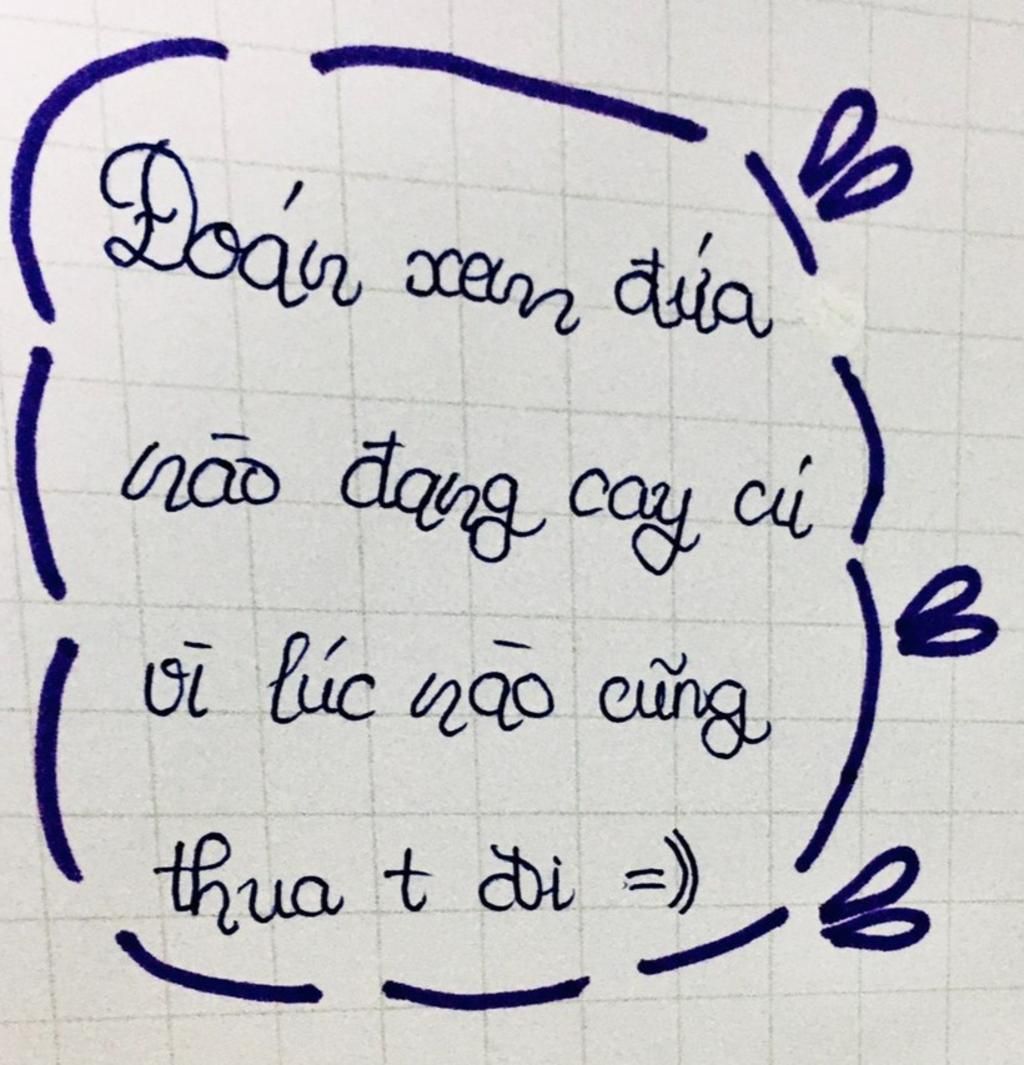 Đoán xem đứa
nào đang cay cú
vì lúc nào cũng
thua t đi =))